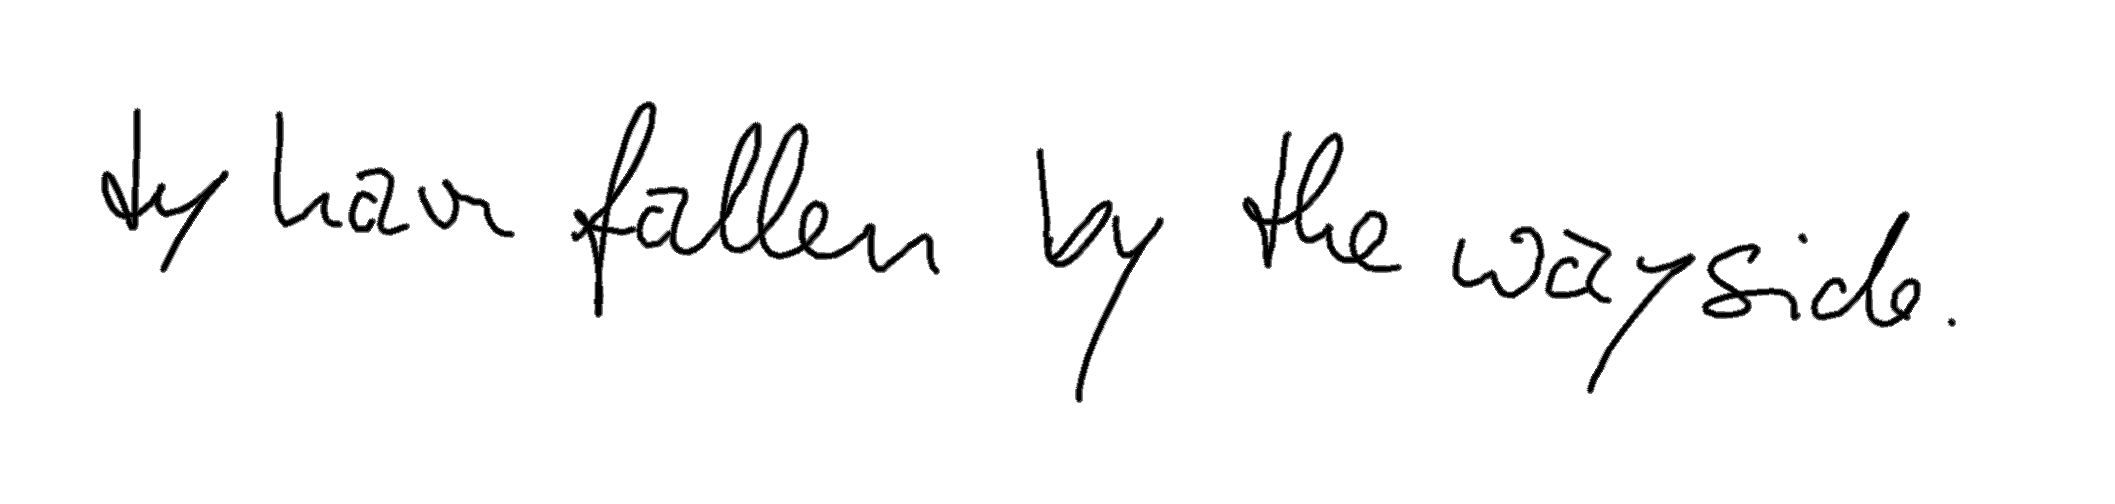 ty have fallen by the wayside.